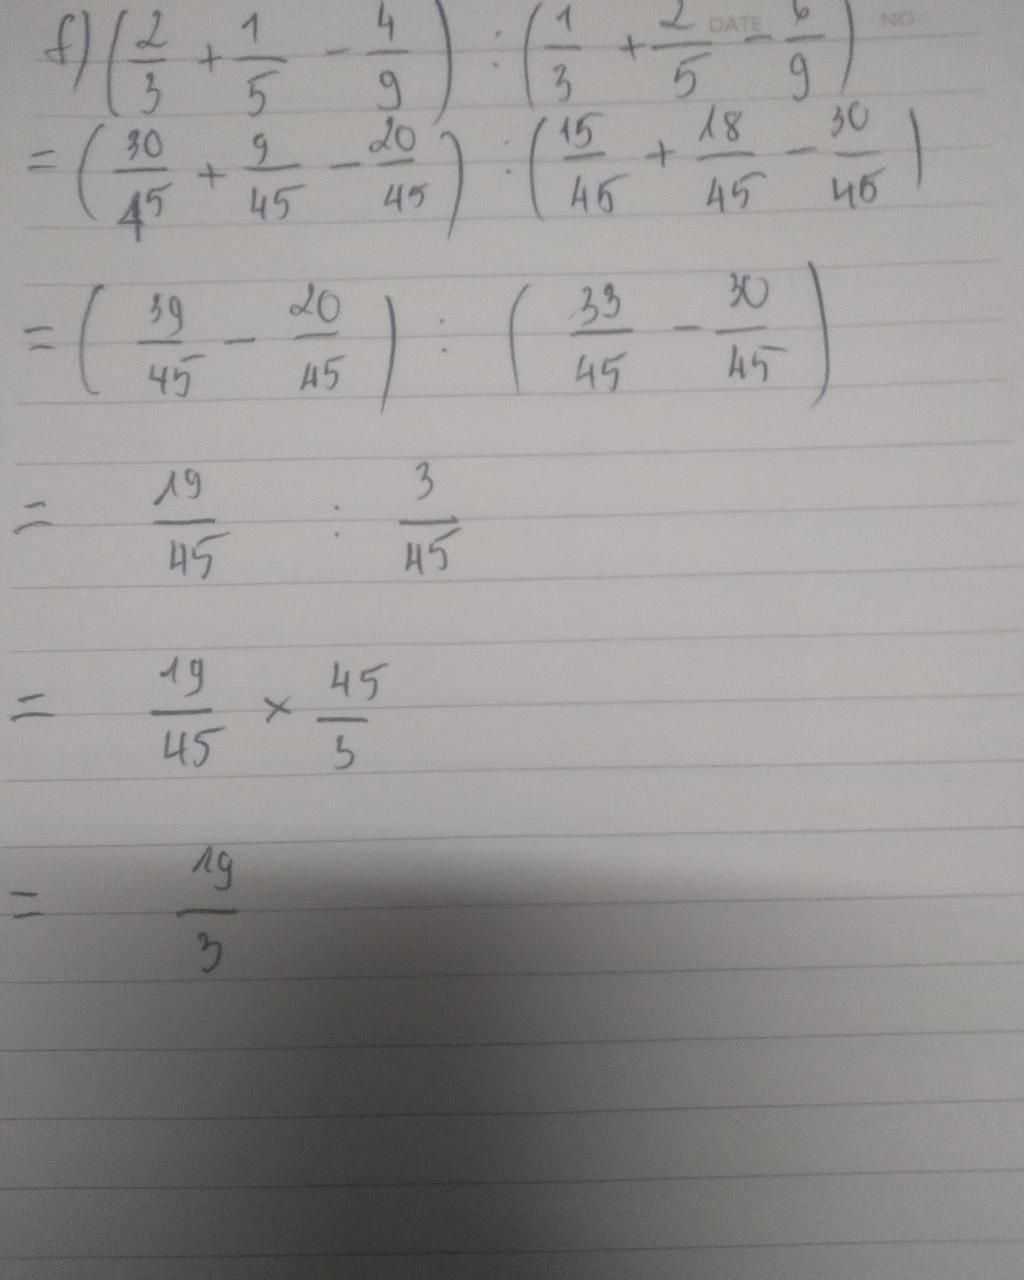 f) (2/3 + 1/5 - 4/9) : (1/3 + 2/5 - 6/9)
DATE NO
= (30/45 + 9/45 - 20/45) : (15/45 + 18/45 - 30/45)
= (39/45 - 20/45) : (33/45 - 30/45)
= 19/45 : 3/45
= 19/45 × 45/3
= 19/3